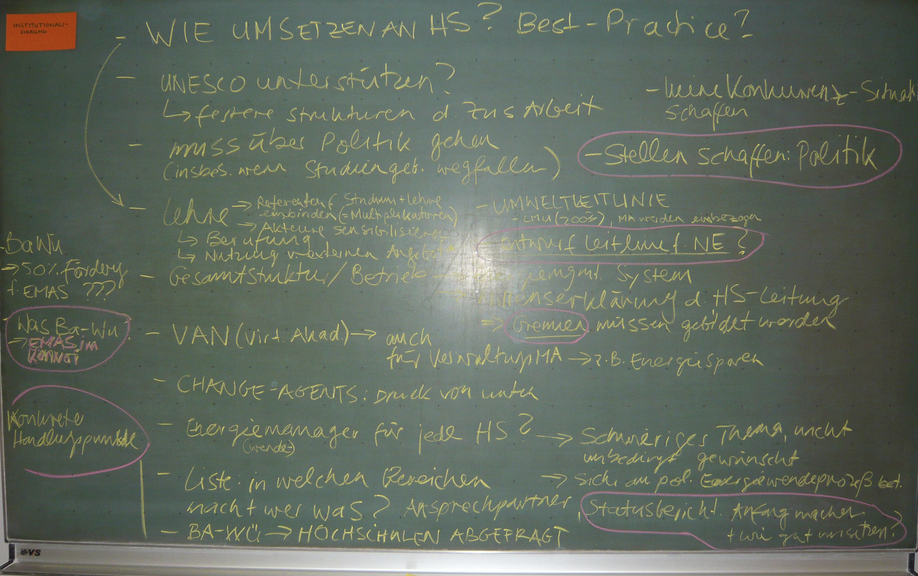 INSTITUTIONALI-
SIERUNG
- WIE UMSETZEN AN HS? Best-Practice?
- UNESCO unterstützen?
↳ festere strukturen d. zus Arbeit
- muss über Politik gehen
(insbes. wenn Studiengeb. wegfallen)
- keine Konkurrenz-Situat.
schaffen
- Stellen schaffen: Politik
- Lehre → Referenten f. Studium + Lehre
einbinden (= Multiplikatoren)
→ Akteure sensibilisieren
↳ Berufung
↳ Nutzung v. externen
- Gesamtstruktur / Betrieb
- UMWELTLEITLINIE
- LMU (200%), MA werden einbezogen
Entwurf Leitlinie f. NE?
mgmt System
enserklärung d. HS-Leitung
⇒ Gremien müssen gebildet werden
- BaWü
→ 50% Förderg
f. EMAS ???
Was Ba-Wü
→ EMAS im
- VAN (Virt. Akad) → auch
für Verwaltungs MA → z.B. Energiesparen
- CHANGE-AGENTS: Druck von unten
Konkrete
Handlungspunkte
- Energiemanager für jede HS?
(wende)
→ Schwieriges Thema, nicht
unbedingt gewünscht
→ Sich an pol. Energiewendeprozeß bet.
- Liste: in welchen Bereichen
macht wer was? Ansprechpartner
Statusbericht: Anfang machen
+ wie gut umsetzen?
- BA-WÜ → HOCHSCHULEN ABGEFRAGT
VS